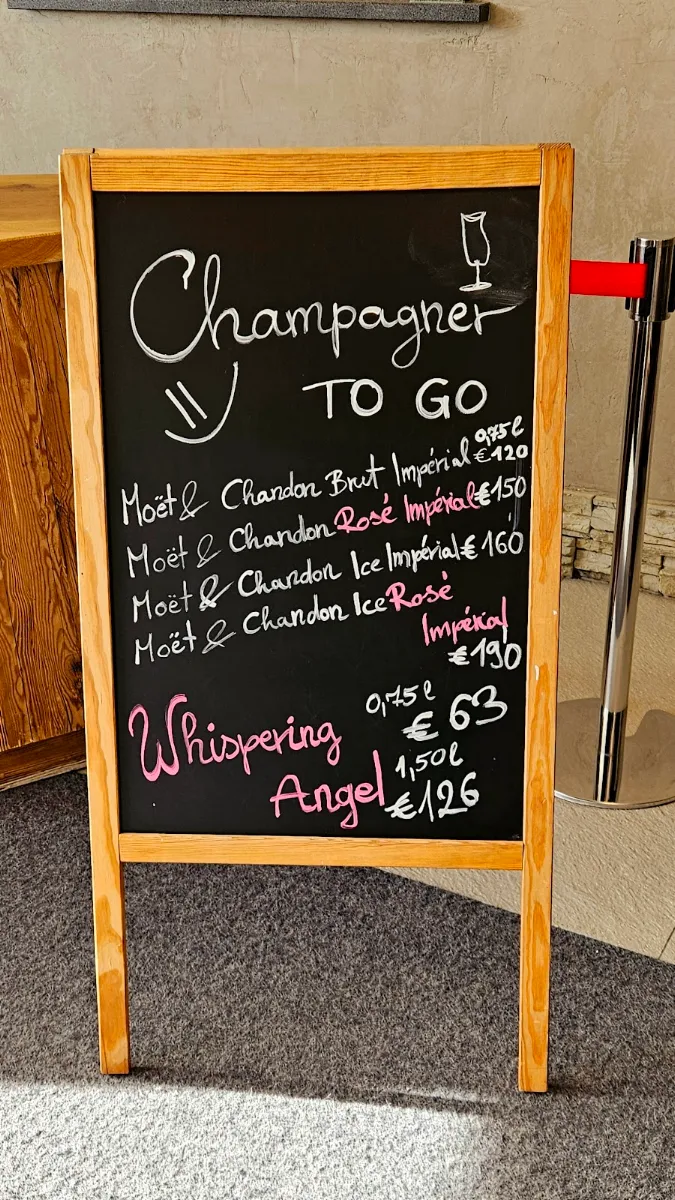 Champagner
TO GO
0,75l
Moët & Chandon Brut Impérial €120
Moët & Chandon Rosé Impérial €150
Moët & Chandon Ice Impérial €160
Moët & Chandon Ice Rosé
Impérial
€190
Whispering 0,75l
€63
Angel 1,50l
€126